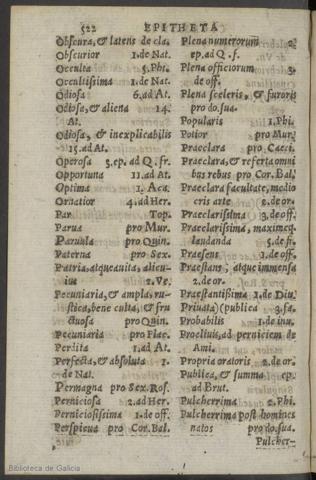 522 EPITHETA
Obscura, & latens de cla.
Obscurior 1.de Nat.
Occulta 5.Phi.
Occultissima 1.de Nat.
Odiosa 6.ad At.
Odiosa, & aliena 14.
At.
Odiosa, & inexplicabilis
15.ad At.
Operosa 3.ep.ad Q.fr.
Opportuna 11.ad At.
Optima 1. Aca.
Ornatior 4.ad Her.
Par Top.
Parua pro Mur.
Paruula pro Quin.
Paterna pro Sex.
Patria, atque auita, alicu-
ius 2.Ve.
Pecuniaria, & ampla, ru-
stica, bene culta, & fru
ctuosa pro Quin.
Pecuniaria pro Flac.
Perdita 1.ad At.
Perfecta, & absoluta 1.
de Nat.
Permagna pro Sex. Ros.
Perniciosa 2.ad Her.
Perniciosissima 1.de off.
Perspicua pro Cor.Bal.
Plena numerorum 2.
ep.ad Q.f.
Plena officiorum 3.
de off.
Plena sceleris, & furoris
pro do.sua.
Popularis 1.Phi.
Potior pro Mur.
Praeclara pro Caeci.
Praeclara, & referta omni
bus rebus pro Cor.Bal.
Praeclara facultate, medio
cris arte 2.de or.
Praeclarissima 3.de off.
Praeclarissima, maximeq.
laudanda 5.de fi.
Praesens 1.de off.
Praestans, atque immensa
2.de or.
Praestantissima 1.de Diu.
Priuata)(publica 3.fa.
Probabilis 1.de inu.
Procliuis, ad perniciem de
Am.
Propria oratoris 2.de or.
Publica, & summa ep.
ad Brut.
Pulcherrima 2.Phi.
Pulcherrima post homines
natos pro do.sua.
Pulcher-
Biblioteca de Galicia